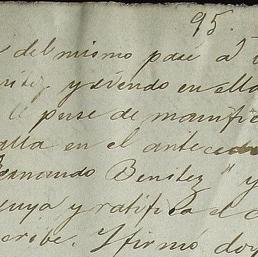 95.
del mismo pasé á
y siendo en ella
le puse de manifie
alla en el antecede
Fernando Benitez" y
enya y ratifica el c
scribe. Y firmó, doy